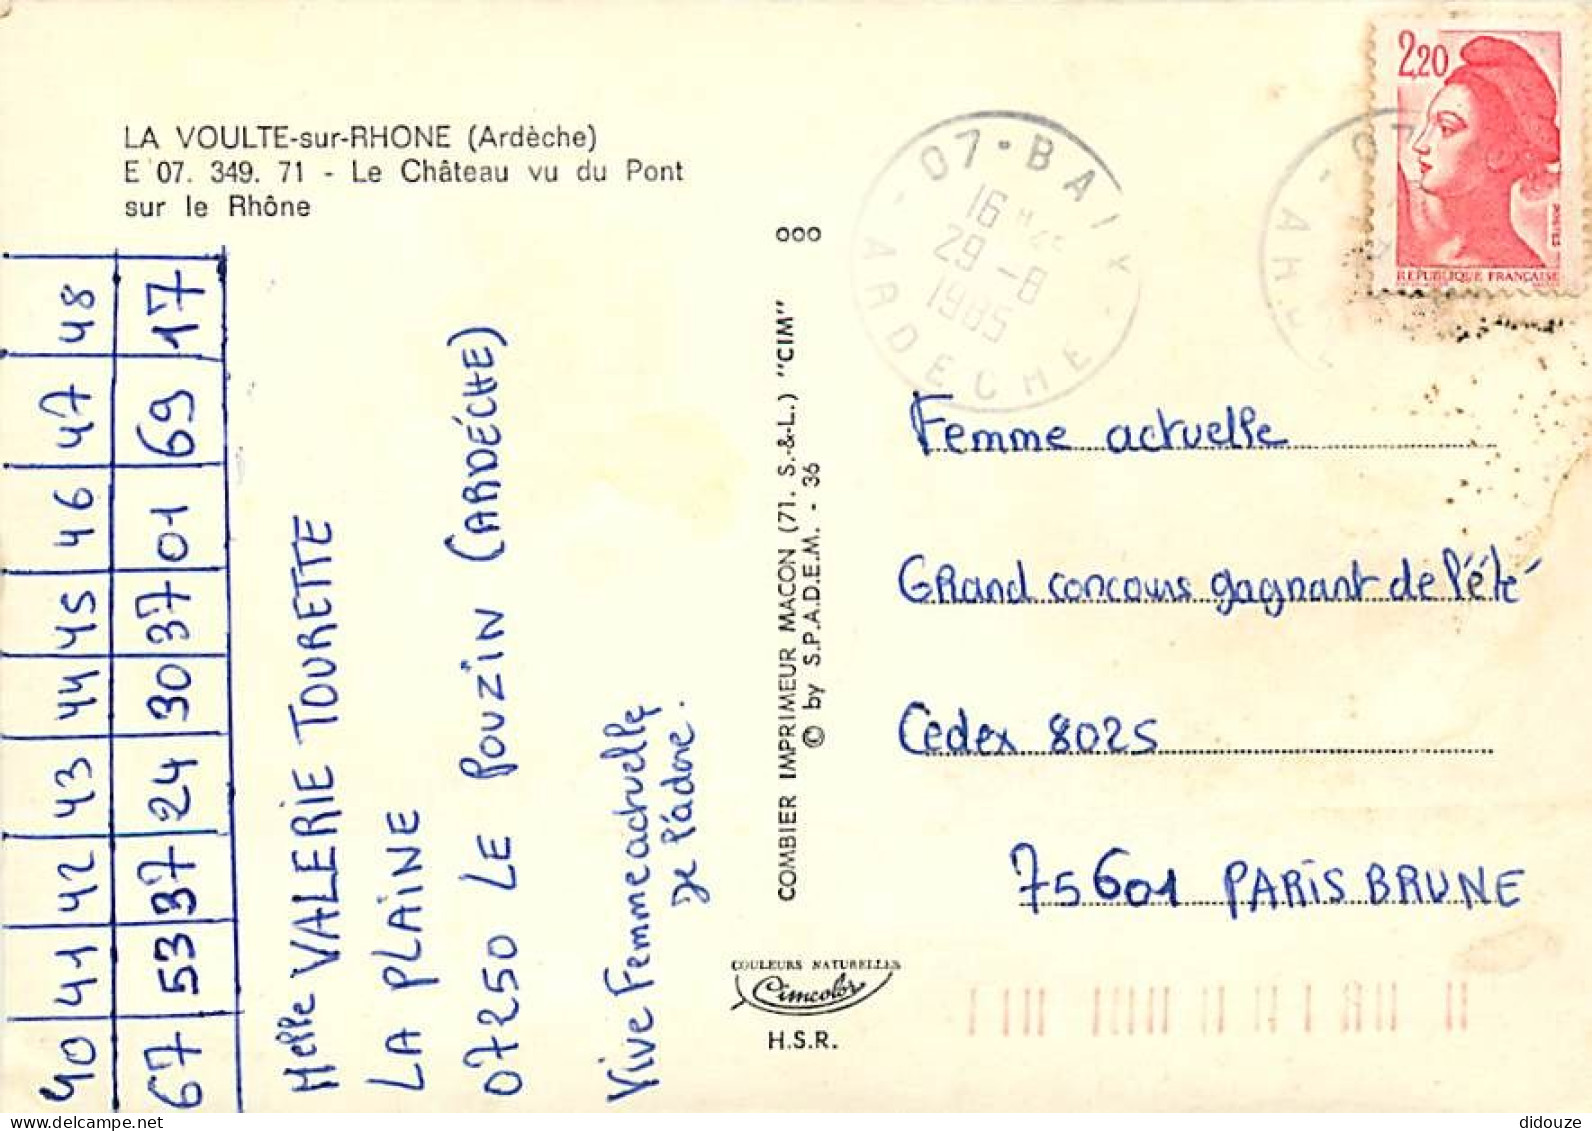 LA VOULTE-sur-RHONE (Ardèche)
E 07. 349. 71 - Le Château vu du Pont
sur le Rhône
40 41 42 43 44 45 46 47 48
67 53 37 24 30 37 01 69 17
Melle VALERIE TOURETTE
LA PLAINE
07250 LE POUZIN (ARDÉCHE)
Vive Femme actuelle
je l'adore.
COMBIER IMPRIMEUR MACON (71. S.-&-L.) "CIM"
© by S.P.A.D.E.M. - 36
COULEURS NATURELLES
Cimcolor
H.S.R.
07-BAIX
16 H
29-8
1985
ARDECHE
2,20
POSTES
REPUBLIQUE FRANÇAISE
Femme actuelle
Grand concours gagnant de l'été
Cedex 8025
75601 PARIS BRUNE
delcampe.net
didouze